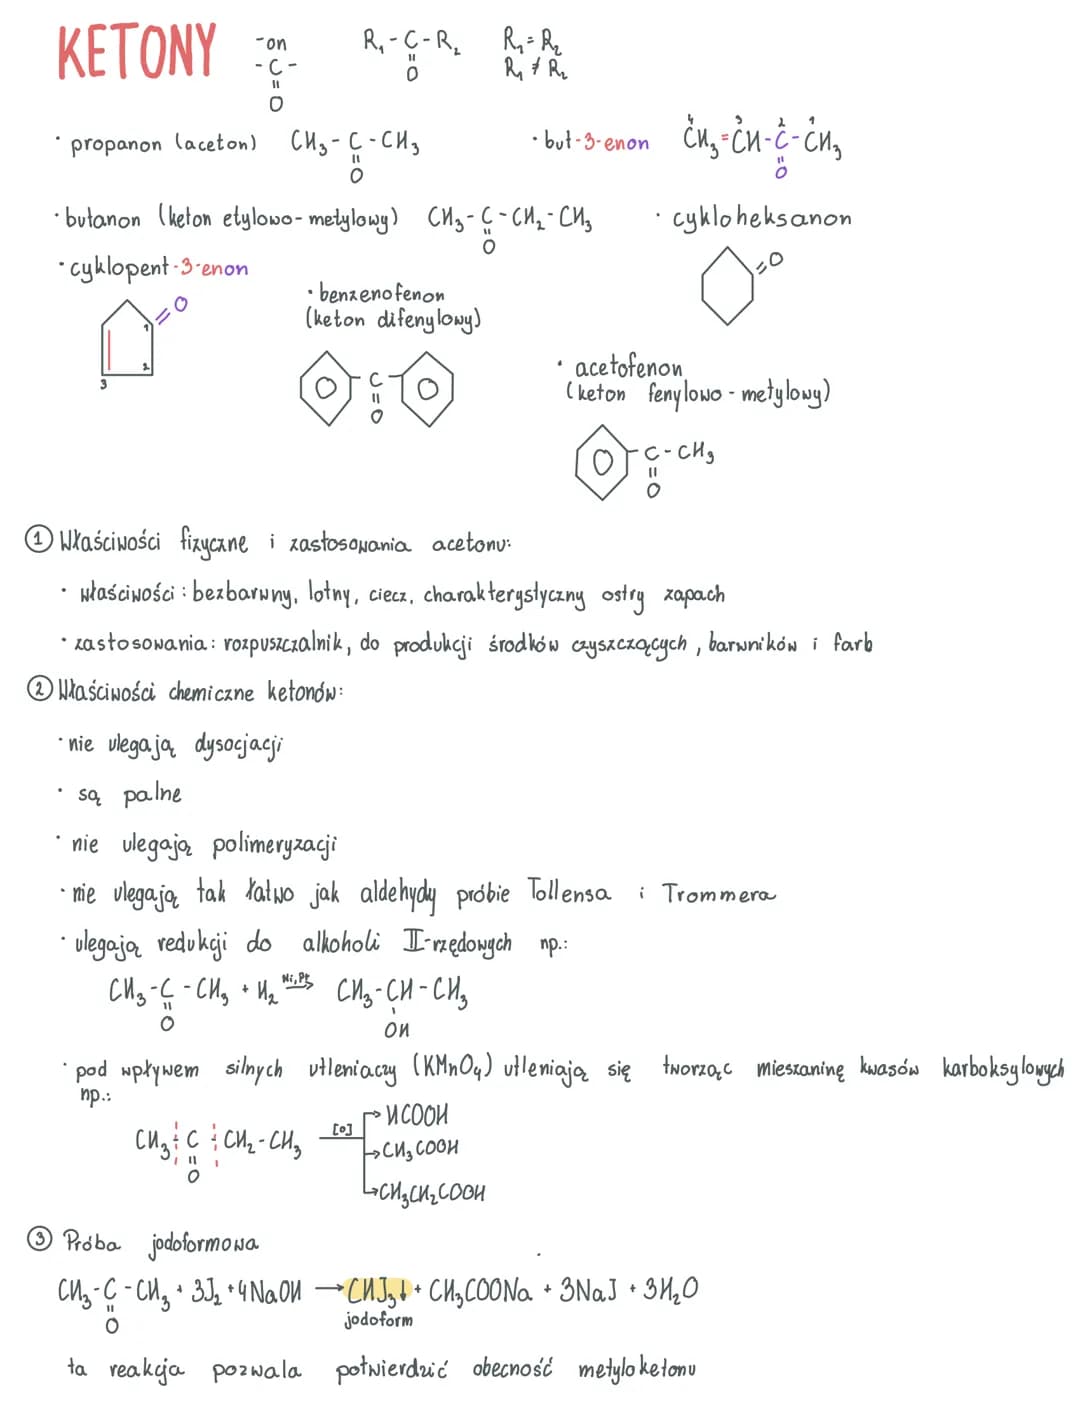 KETONY -on R₁-C-R₂ R₁=R₂
-C- || R₁≠R₂
|| O
O
· propanon (aceton) CH₃-C-CH₃
||
O
· but-3-enon CH₂=CH-C-CH₃
4 3 2 1
||
O
· butanon (keton etylowo-metylowy) CH₃-C-CH₂-CH₃
||
O
· cykloheksanon
=O
· cyklopent-3-enon
=O
1
2
3
· benzenofenon
(keton difenylowy)
C
||
O
· acetofenon
(keton fenylowo-metylowy)
C-CH₃
||
O
① Właściwości fizyczne i zastosowania acetonu:
· właściwości: bezbarwny, lotny, ciecz, charakterystyczny ostry zapach
· zastosowania: rozpuszczalnik, do produkcji środków czyszczących, barwników i farb
② Właściwości chemiczne ketonów:
· nie ulegają dysocjacji
· są palne
· nie ulegają polimeryzacji
· nie ulegają tak łatwo jak aldehydy próbie Tollensa i Trommera
· ulegają redukcji do alkoholi II-rzędowych np.:
CH₃-C-CH₃ + H₂ Ni,Pt→ CH₃-CH-CH₃
|| |
O OH
· pod wpływem silnych utleniaczy (KMnO₄) utleniają się tworząc mieszaninę kwasów karboksylowych
np.:
CH₃-C-CH₂-CH₃ [O]
||
O
→HCOOH
→CH₃COOH
→CH₃CH₂COOH
③ Próba jodoformowa
CH₃-C-CH₃ + 3J₂ + 4NaOH → CHJ₃↓ + CH₃COONa + 3NaJ + 3H₂O
||
O
jodoform
ta reakcja pozwala potwierdzić obecność metyloketonu